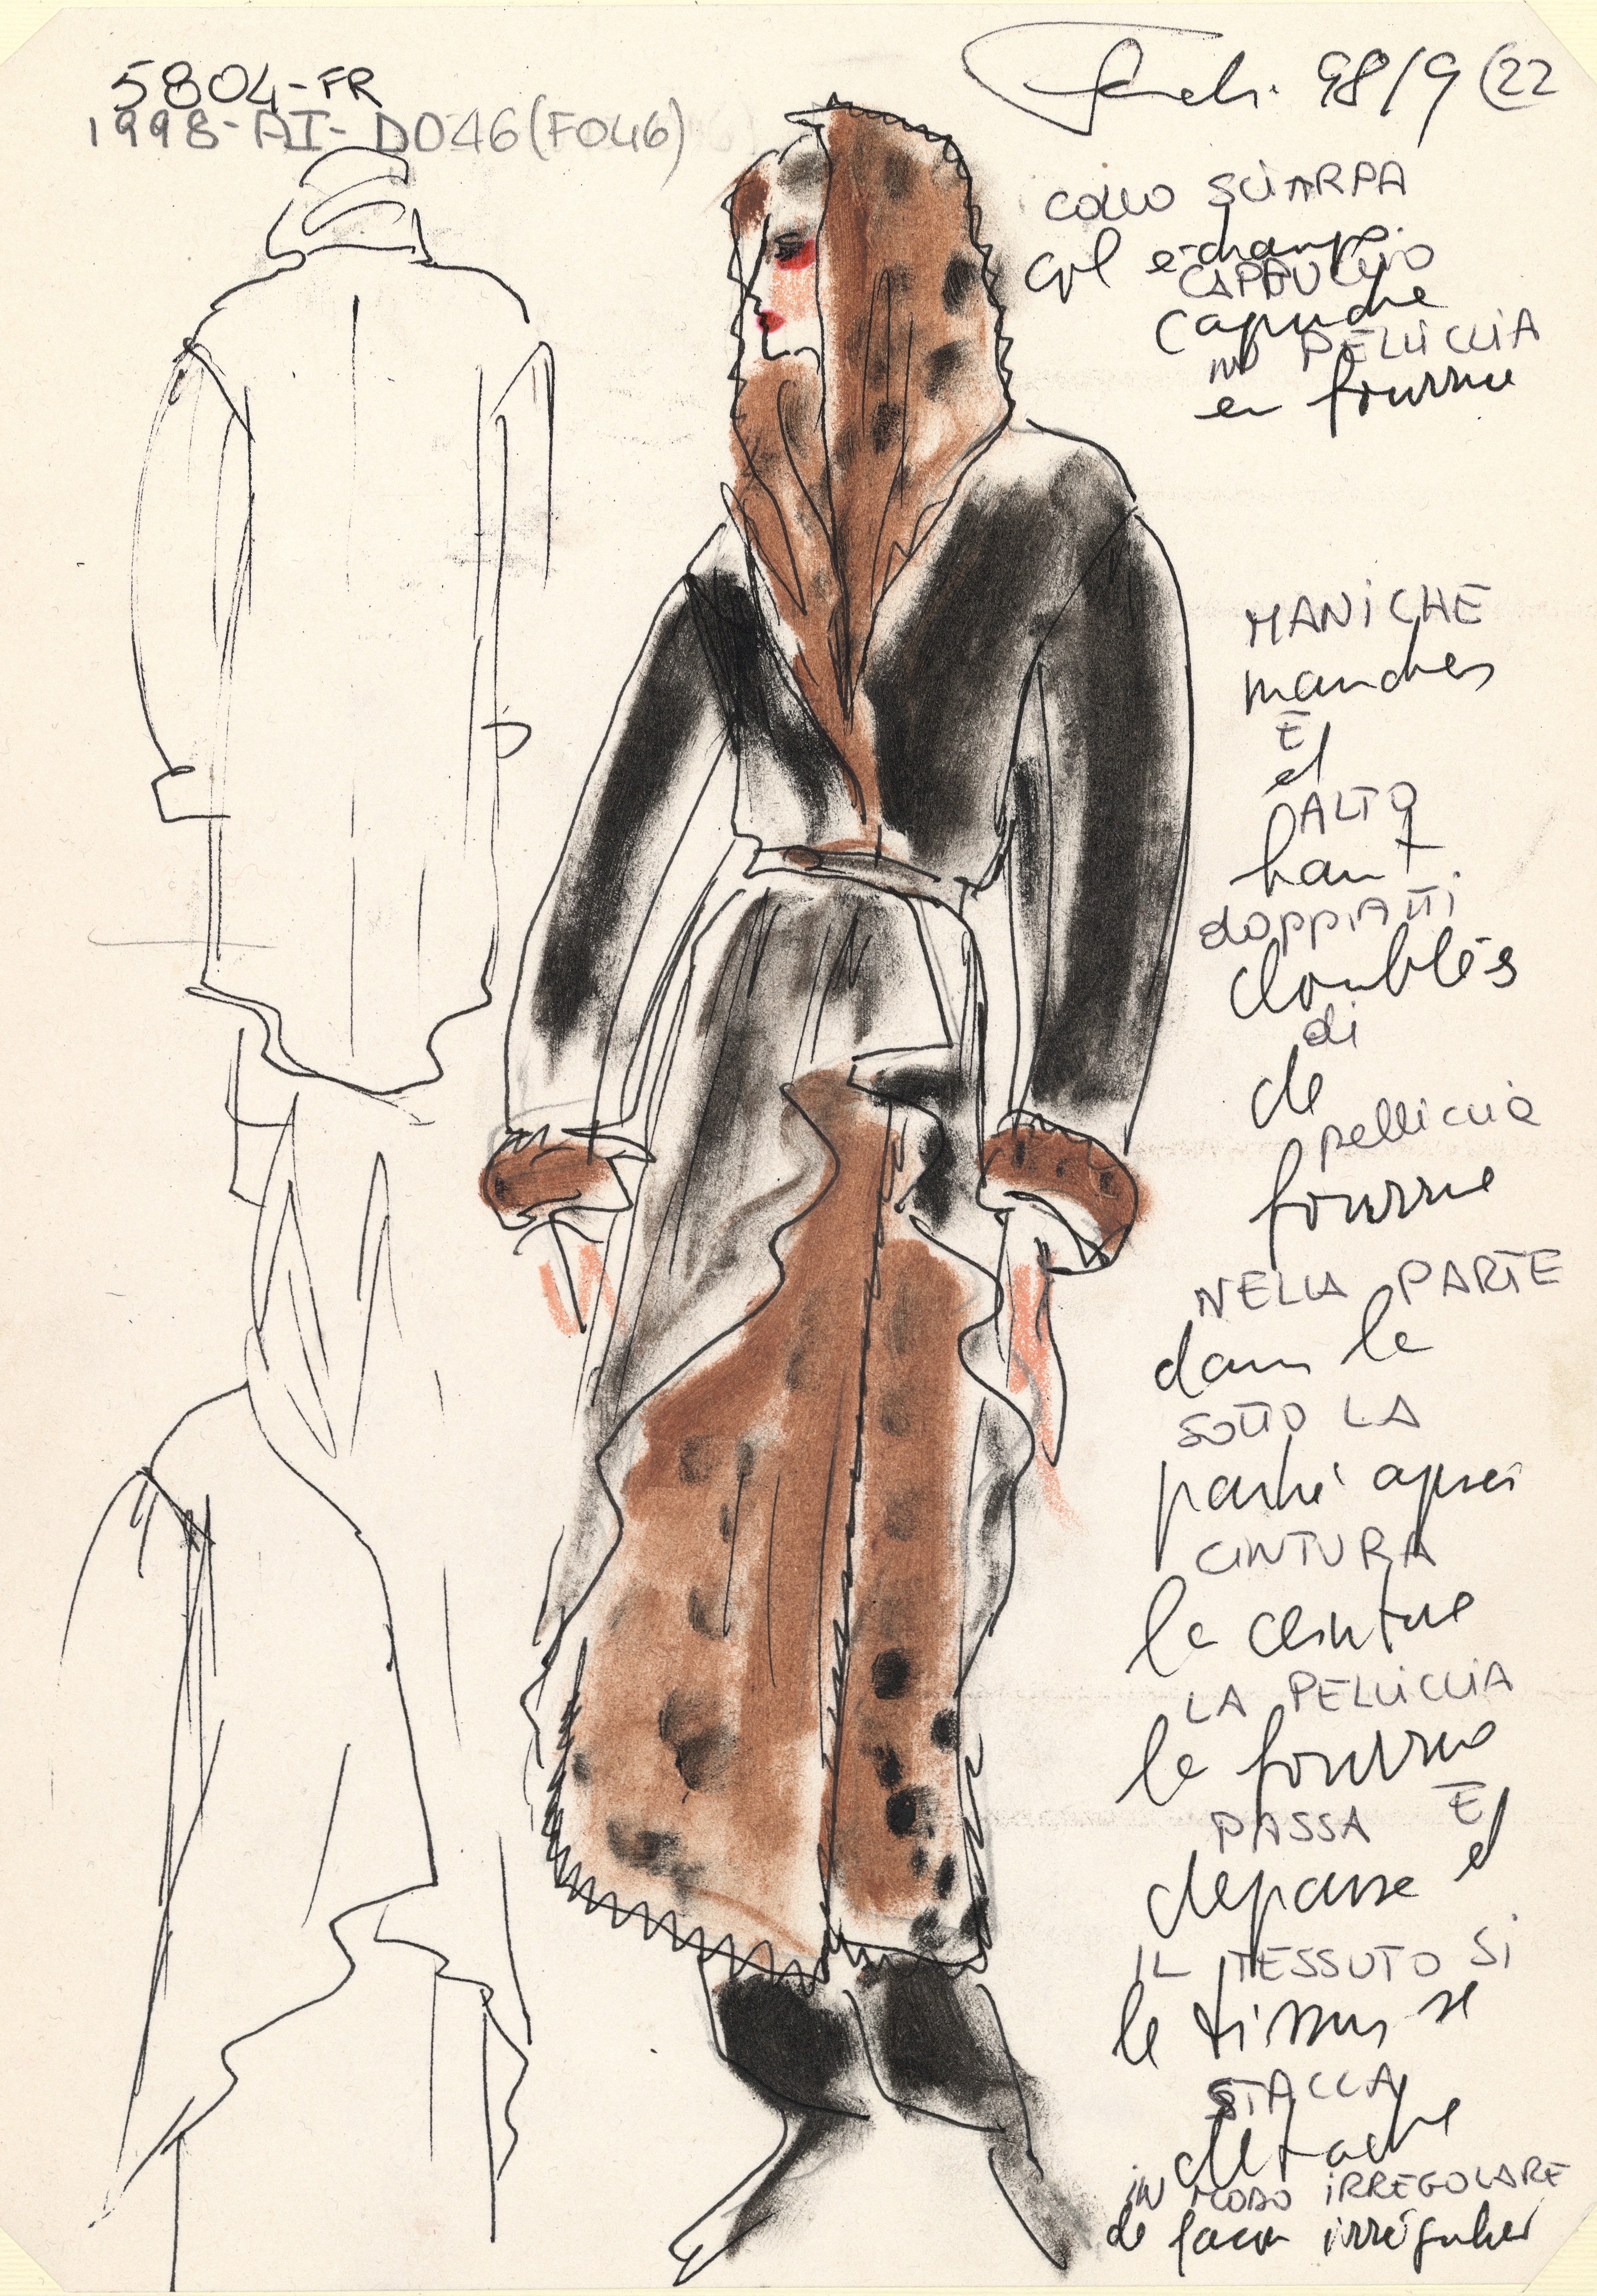 5804-FR
1998-AI-D046(F046)
Fendi. 98/9 (22
COLLO SCIARPA
col echarpe.
CAPPUCCIO
Capuche
IN PELLICCIA
en fourrure
MANICHE
manches
E
et
ALTO
haut
DOPPIATTI
doublés
di
de
pelliccia
fourrure
NELLA PARTE
dans la
SOTTO LA
partie après
CINTURA
la ceinture
LA PELLICCIA
la fourrure
PASSA E
depasse et
IL TESSUTO SI
le tissus se
STACCA
detache
IN MODO IRREGOLARE
de facon irrégulier